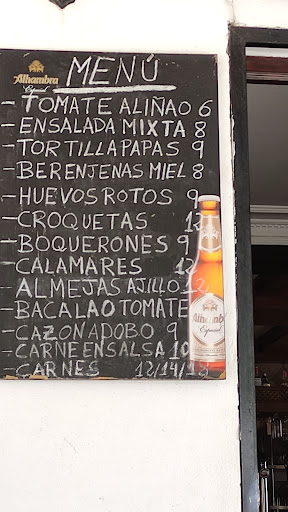 Alhambra
Especial
MENÚ
- TOMATE ALIÑAO 6
- ENSALADA MIXTA 8
- TORTILLA PAPAS 9
- BERENJENAS MIEL 8
- HUEVOS ROTOS 9
- CROQUETAS
- BOQUERONES 9
- CALAMARES 12
- ALMEJAS AJILLO 12
- BACALAO TOMATE
- CAZON ADOBO 9
- CARNE EN SALSA 10
- CARNES 12/14/18
Alhambra
Especial